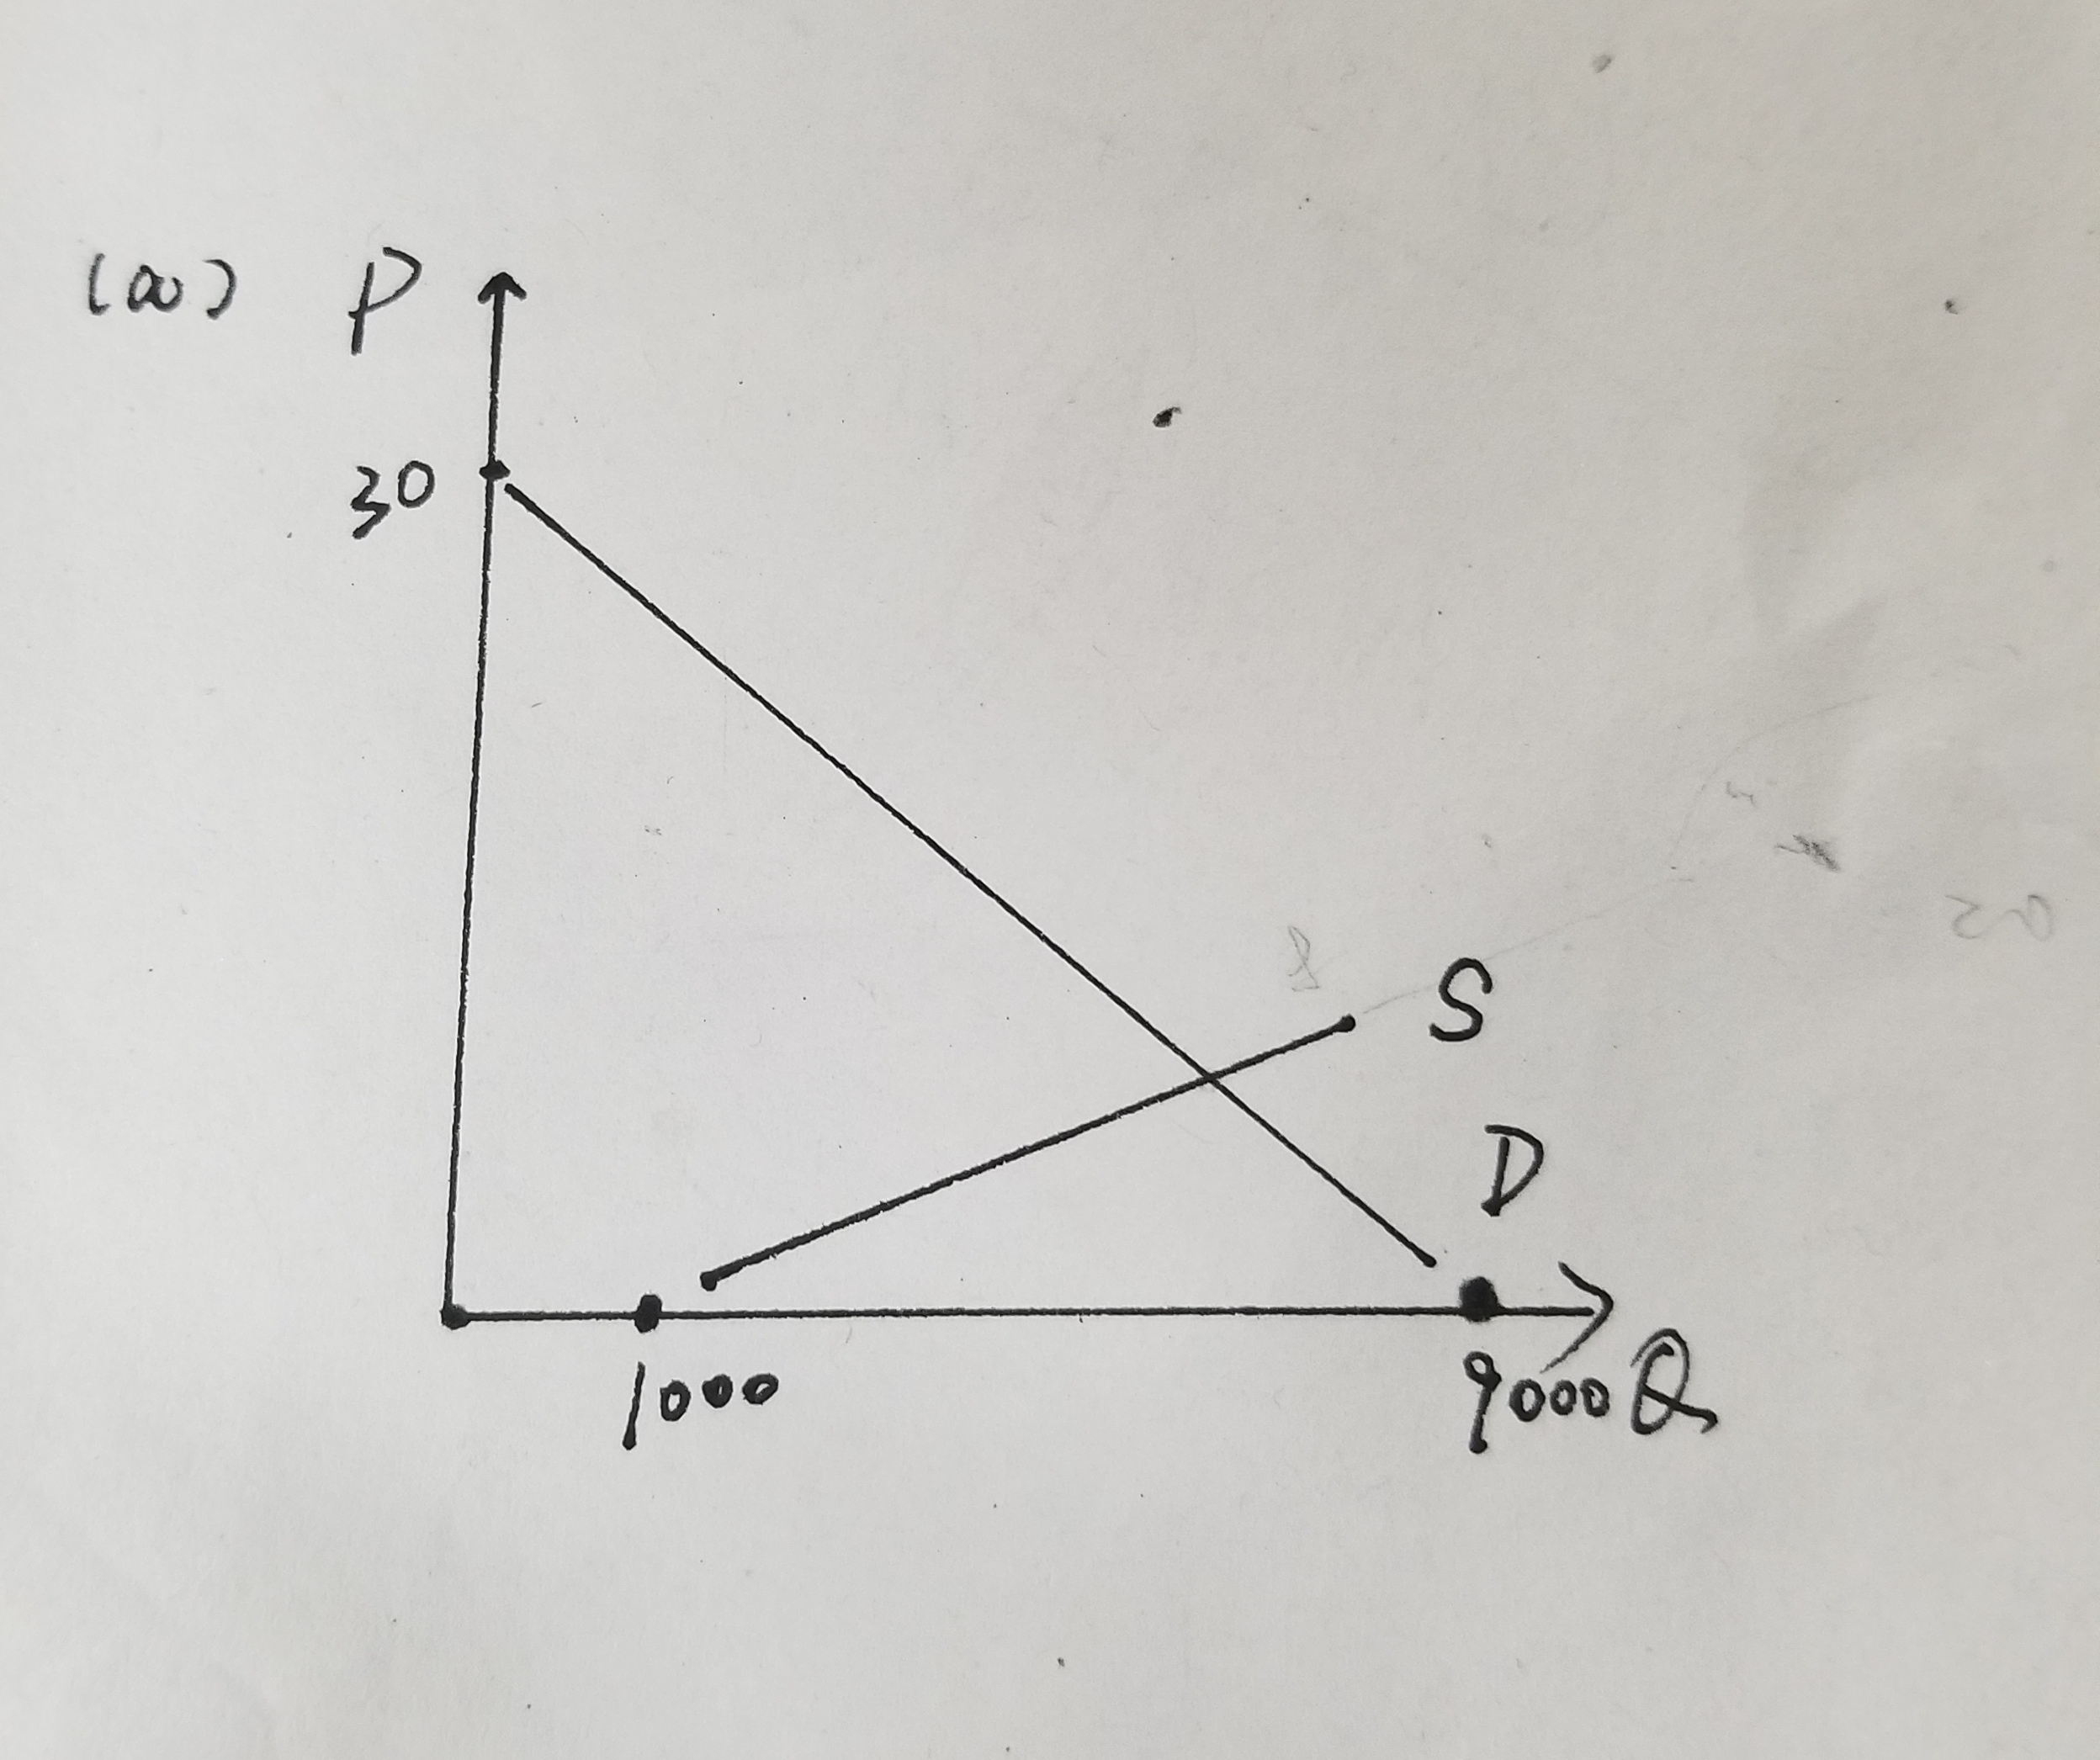 (a) P
30
S
D
1000
9000 Q